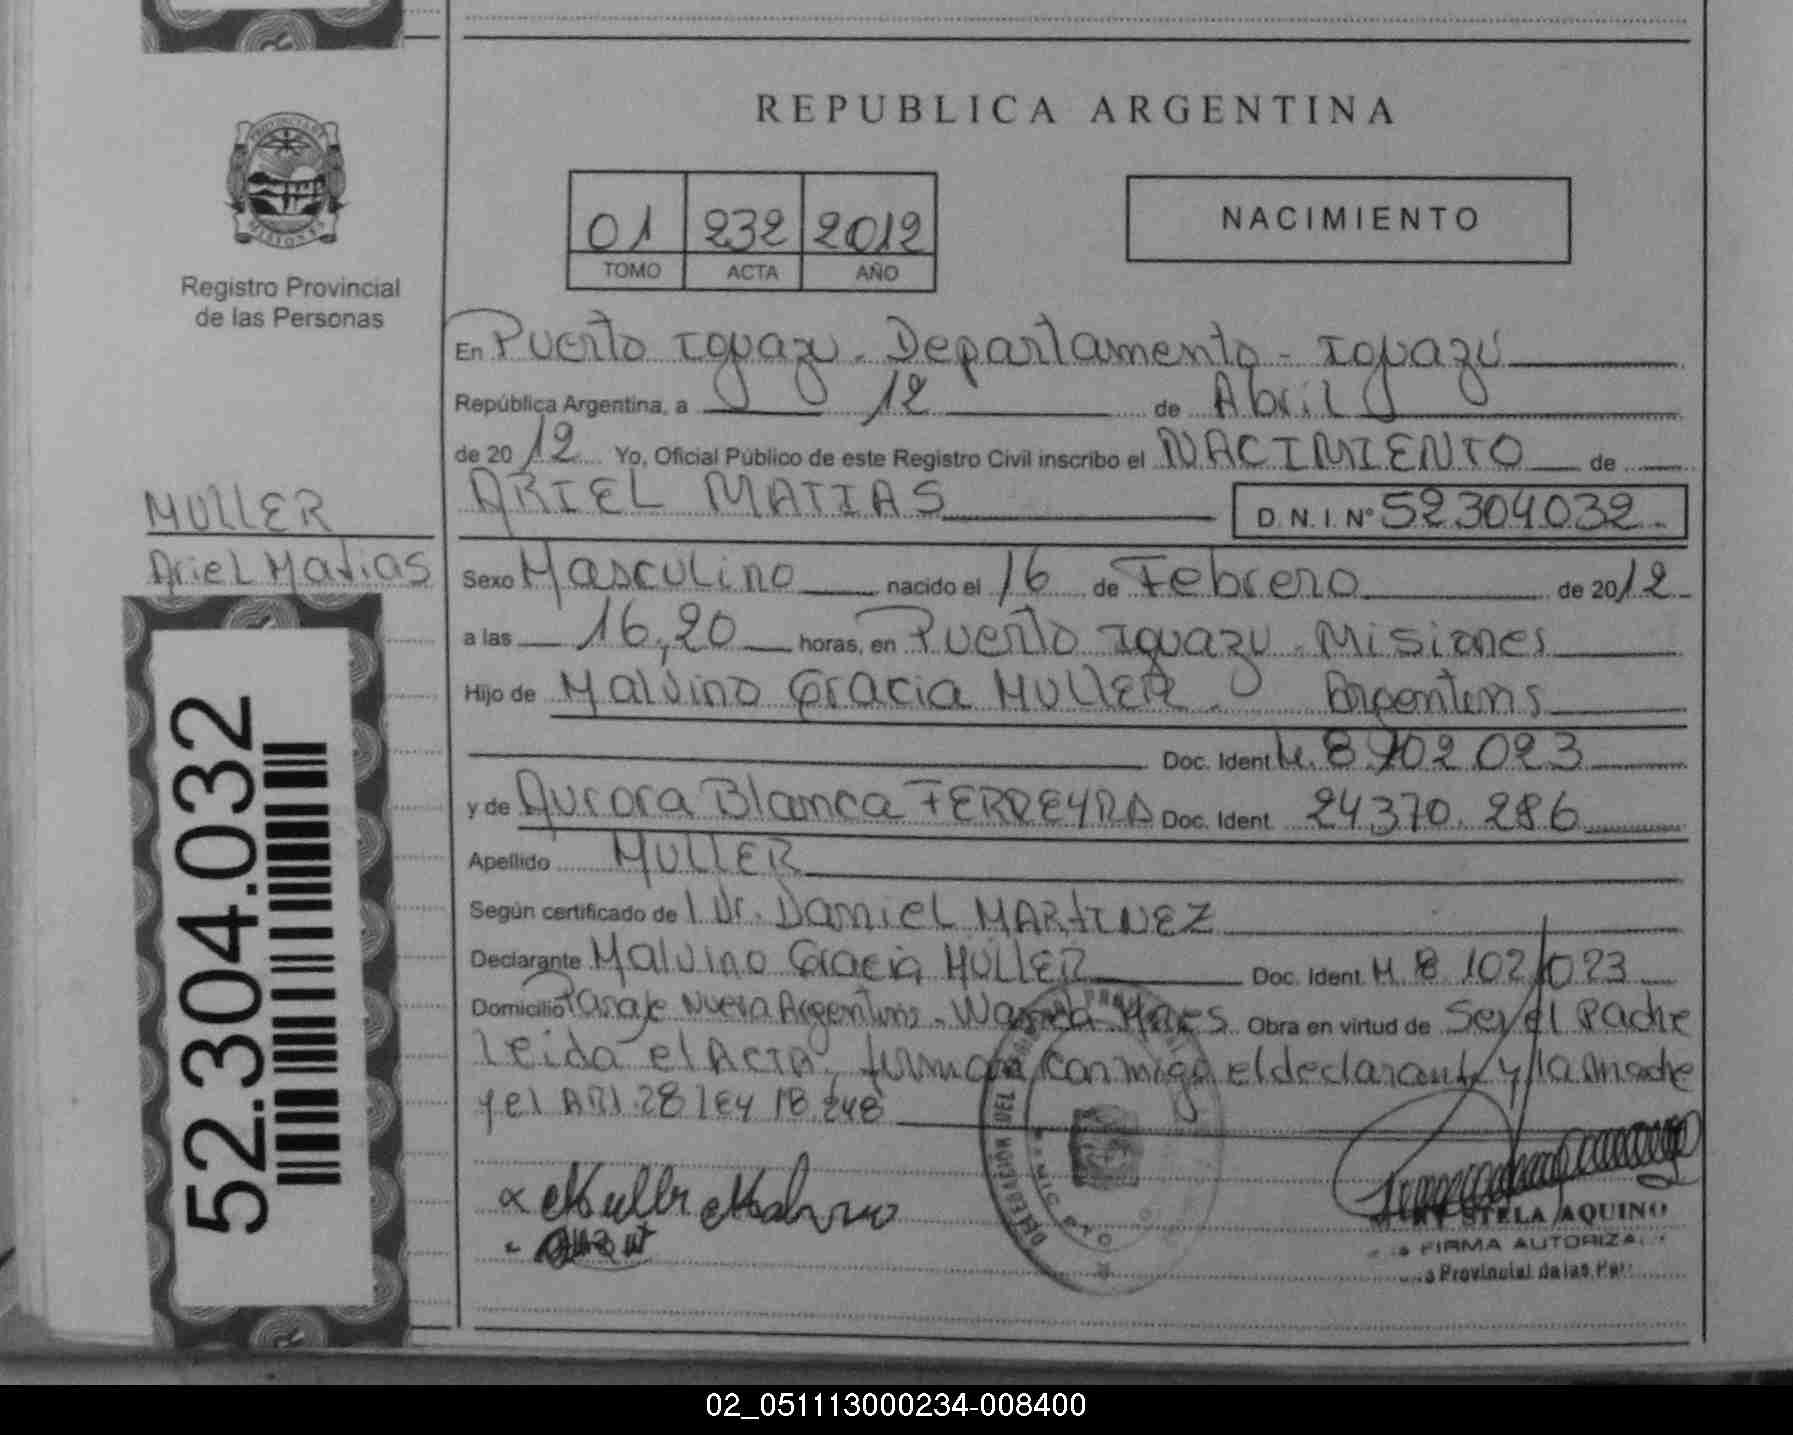 REPUBLICA ARGENTINA
01 232 2012
TOMO ACTA AÑO
NACIMIENTO
Registro Provincial
de las Personas
En Puerto Iguazu - Departamento - Iguazú
República Argentina, a 12 de Abril
de 2012 Yo, Oficial Público de este Registro Civil inscribo el NACIMIENTO de
ARIEL MATIAS D.N.I. Nº 52304032
MULLER
Ariel Matias
Sexo Masculino nacido el 16 de Febrero de 2012
a las 16,20 horas, en Puerto Iguazu - Misiones
Hijo de Malvino Gracia MULLER. Argentino
Doc. Ident M. 8 102 023
y de Aurora Blanca FERREYRA Doc. Ident 24370.286
Apellido MULLER
Según certificado de Dr. Daniel MARTINEZ
Declarante Malvino Gracia MULLER Doc. Ident M 8 102 023
Domicilio Pasaje Nueva Argentina - Wanda Mnes Obra en virtud de Ser el Padre
Leida el ACTA, firman conmigo el declarante y la madre
y el ART. 28 ley 18.248
Muller Malvino
STELA AQUINO
FIRMA AUTORIZA
Provincial de las Per
52.304.032
02_051113000234-008400